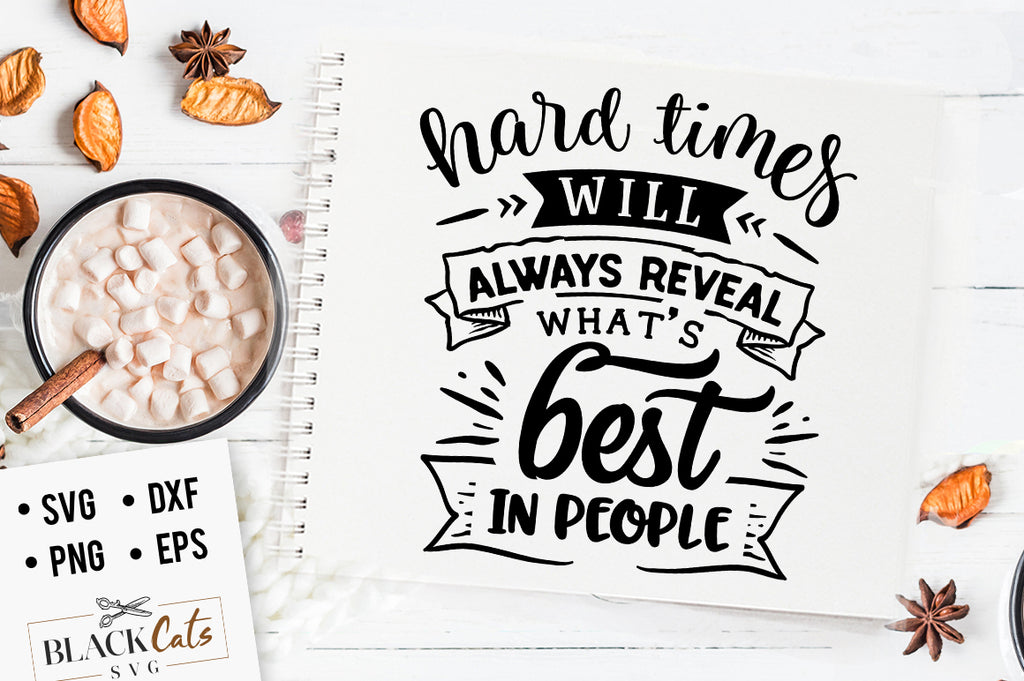 hard times
WILL
ALWAYS REVEAL
WHAT'S
best
IN PEOPLE
• SVG • DXF
• PNG • EPS
BLACK Cats
SVG